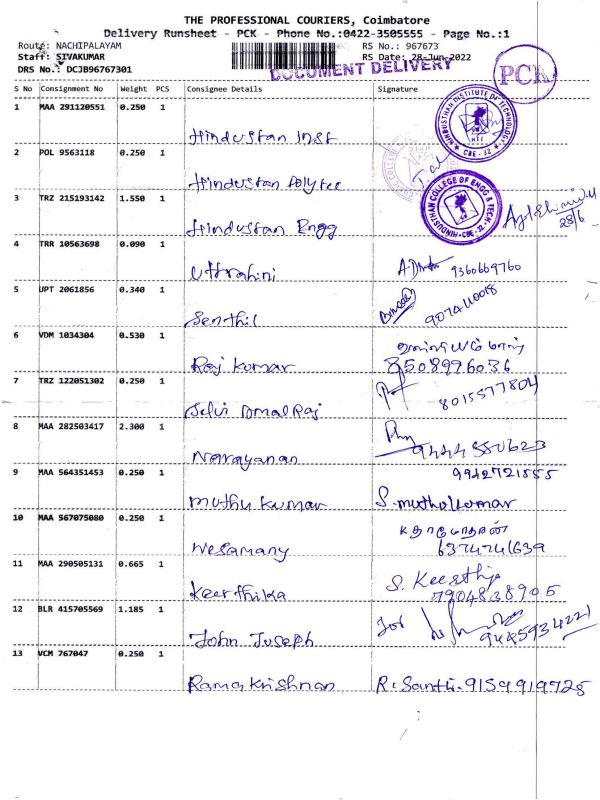 THE PROFESSIONAL COURIERS, Coimbatore
Delivery Runsheet - PCK - Phone No.:0422-3505555 - Page No.:1
Route: NACHIPALAYAM RS No.: 967673
Staff: SIVAKUMAR RS Date: 28-Jun-2022
DRS No.: DCJB96767301 DOCUMENT DELIVERY PCK
S No Consignment No Weight PCS Consignee Details Signature
1 MAA 291120551 0.250 1
Hindustan Inst
HINDUSTHAN INSTITUTE OF TECHNOLOGY CBE - 32
2 POL 9563118 0.250 1
Hindustan Polytec
3 TRZ 215193142 1.550 1
Hindustan Engg
HINDUSTHAN COLLEGE OF ENGG & TECH CBE - 32
28/6
4 TRR 10563698 0.090 1
Uttrahini 9360669760
5 UPT 2061856 0.340 1
Senthil 9074110018
6 VDM 1034304 0.530 1
Raj kumar 8508996036
7 TRZ 122051302 0.250 1
Selvi Amalraj 8015577804
8 MAA 282503417 2.300 1
Narayanan 9444550623
9 MAA 564351453 0.250 1 9942721555
muthu kumar S. muthukumar
10 MAA 567075080 0.250 1
Nesamany 6374741639
11 MAA 290505131 0.665 1
Keerthika S. Keerthi 7904838905
12 BLR 415705569 1.185 1
John Joseph for 9445934221
13 VCM 767047 0.250 1
Rama krishnan R. Santhi. 9159919725